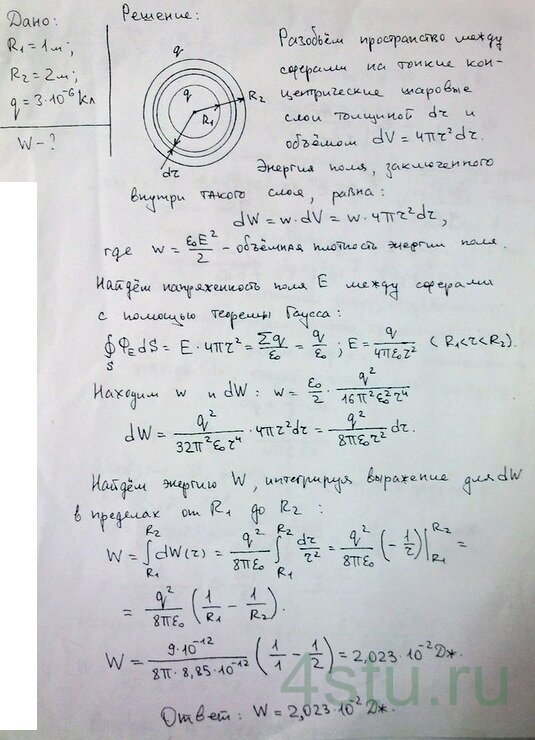 Дано:
R₁ = 1 м;
R₂ = 2 м;
q = 3·10⁻⁶ Кл
W - ?
Решение:
q
q
R₁
R₂
dr
Разобьём пространство между
сферами на тонкие кон-
центрические шаровые
слои толщиной dr и
объёмом dV = 4πr²dr.
Энергия поля, заключенного
внутри такого слоя, равна:
dW = w·dV = w·4πr²dr,
где w = ε₀E²/2 - объёмная плотность энергии поля.
Найдём напряженность поля E между сферами
с помощью теоремы Гаусса:
∮_S Φ_E dS = E·4πr² = Σq/ε₀ = q/ε₀ ; E = q/(4πε₀r²) (R₁<r<R₂).
Находим w и dW: w = ε₀/2 · q²/(16π²ε₀²r⁴)
dW = q²/(32π²ε₀r⁴) · 4πr²dr = q²/(8πε₀r²) dr.
Найдём энергию W, интегрируя выражение для dW
в пределах от R₁ до R₂ :
W = ∫_{R₁}^{R₂} dW(r) = q²/(8πε₀) ∫_{R₁}^{R₂} dr/r² = q²/(8πε₀) (-1/r)|_{R₁}^{R₂} =
= q²/(8πε₀) (1/R₁ - 1/R₂).
W = 9·10⁻¹²/(8π·8,85·10⁻¹²) (1/1 - 1/2) = 2,023·10⁻² Дж.
4stu.ru
Ответ: W = 2,023·10⁻² Дж.